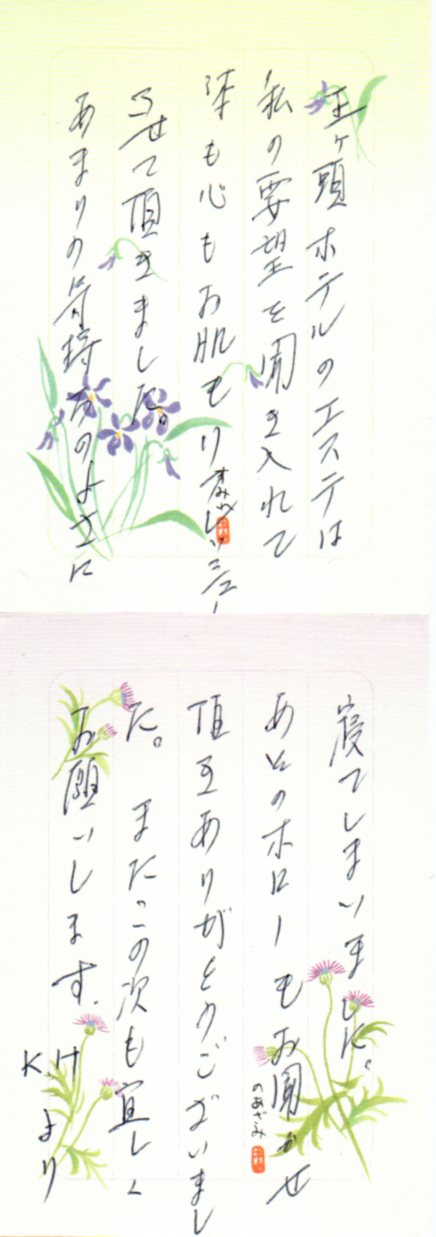 王ヶ頭ホテルのエステは
私の要望を聞き入れて
体も心もお肌もリフレッシュ
させて頂きました。
あまりの気持ちの、よさに
すみれ
寝てしまいました。
あとのホローもお聞かせ
頂きありがとうございまし
た。またこの次も宜しく
お願いします。
K.Hより
のあざみ